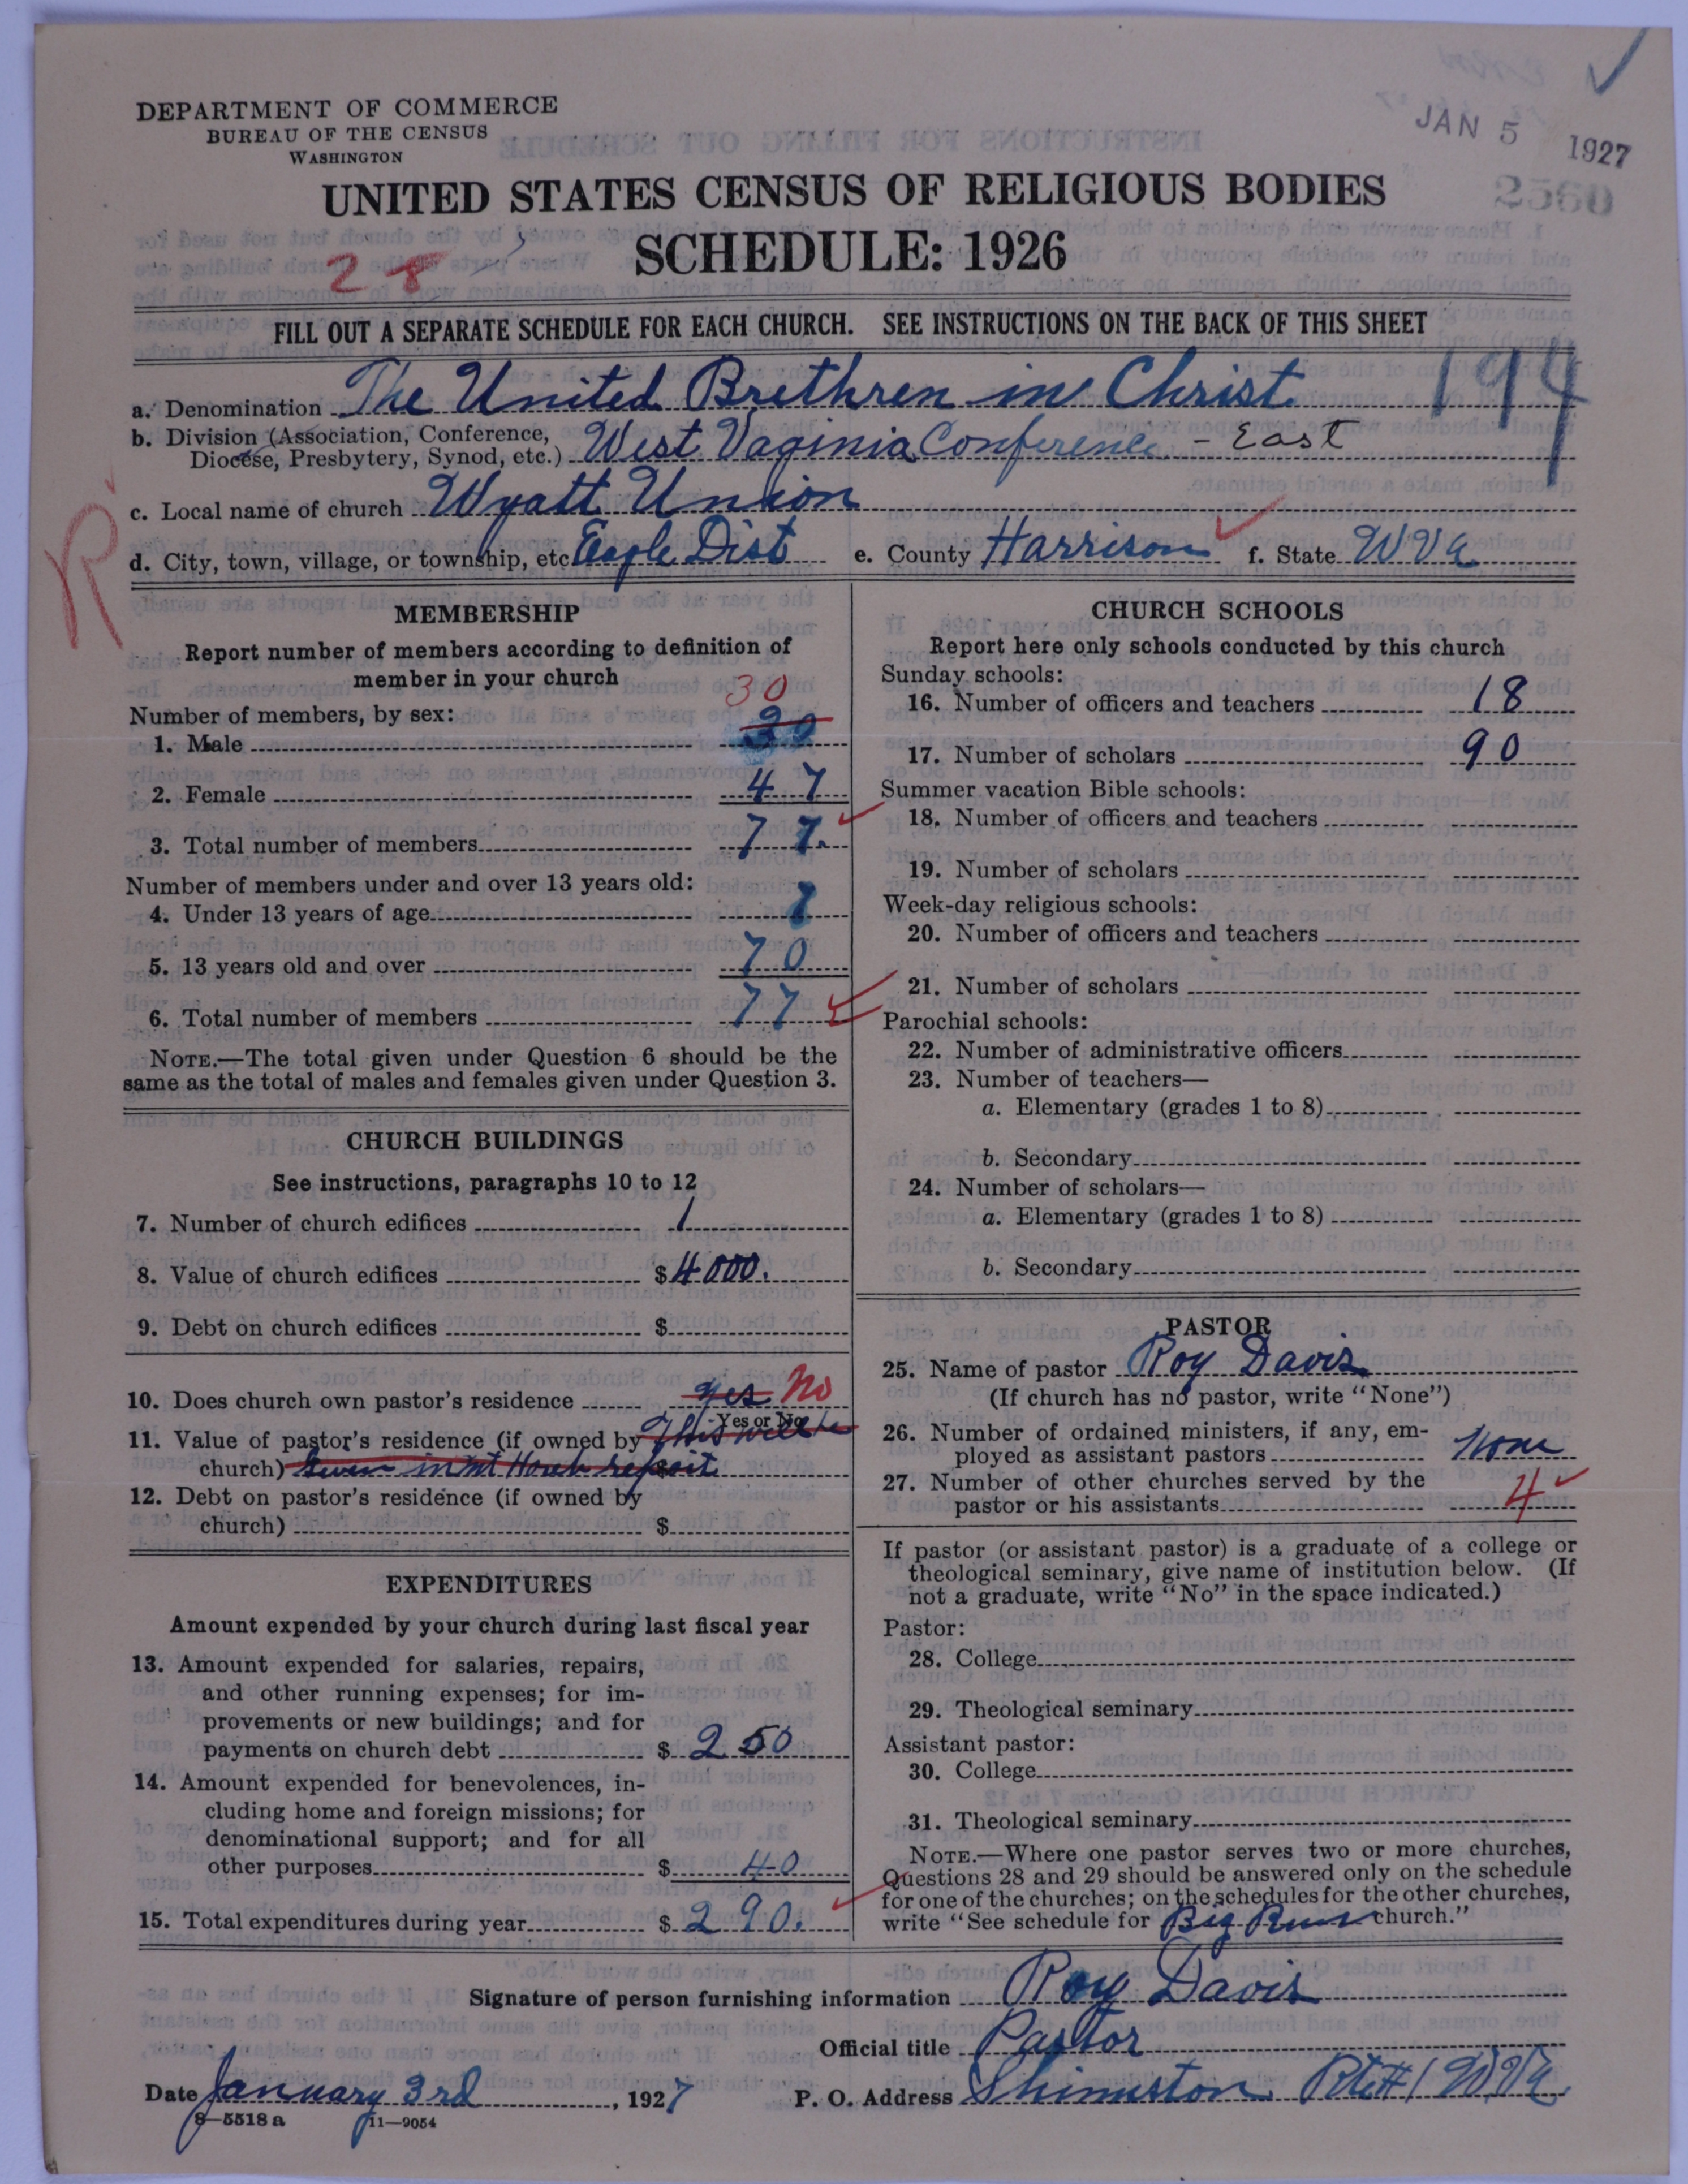 DEPARTMENT OF COMMERCE
BUREAU OF THE CENSUS
WASHINGTON
JAN 5 1927
2560
UNITED STATES CENSUS OF RELIGIOUS BODIES
SCHEDULE: 1926
28
FILL OUT A SEPARATE SCHEDULE FOR EACH CHURCH. SEE INSTRUCTIONS ON THE BACK OF THIS SHEET
194
a. Denomination The United Brethren in Christ
b. Division (Association, Conference, Diocese, Presbytery, Synod, etc.) West Vaginia Conference - East
R
c. Local name of church Wyatt Union
d. City, town, village, or township, etc Eagle Dist e. County Harrison f. State W Va
MEMBERSHIP
Report number of members according to definition of
member in your church
Number of members, by sex:
30
1. Male 30
2. Female 47
3. Total number of members 77.
Number of members under and over 13 years old:
4. Under 13 years of age 7
5. 13 years old and over 70
6. Total number of members 77
NOTE.—The total given under Question 6 should be the
same as the total of males and females given under Question 3.
CHURCH BUILDINGS
See instructions, paragraphs 10 to 12
7. Number of church edifices 1
8. Value of church edifices $4000.
9. Debt on church edifices $
10. Does church own pastor's residence yes No
Yes or No
11. Value of pastor's residence (if owned by This will be
church) Given in Mt report
12. Debt on pastor's residence (if owned by
church) $
EXPENDITURES
Amount expended by your church during last fiscal year
13. Amount expended for salaries, repairs,
and other running expenses; for im-
provements or new buildings; and for
payments on church debt $ 250
14. Amount expended for benevolences, in-
cluding home and foreign missions; for
denominational support; and for all
other purposes $ 40
15. Total expenditures during year $ 290.
CHURCH SCHOOLS
Report here only schools conducted by this church
Sunday schools:
16. Number of officers and teachers 18
17. Number of scholars 90
Summer vacation Bible schools:
18. Number of officers and teachers
19. Number of scholars
Week-day religious schools:
20. Number of officers and teachers
21. Number of scholars
Parochial schools:
22. Number of administrative officers
23. Number of teachers—
a. Elementary (grades 1 to 8)
b. Secondary
24. Number of scholars—
a. Elementary (grades 1 to 8)
b. Secondary
PASTOR
25. Name of pastor Roy Davis
(If church has no pastor, write "None")
26. Number of ordained ministers, if any, em-
ployed as assistant pastors None
27. Number of other churches served by the
pastor or his assistants 4
If pastor (or assistant pastor) is a graduate of a college or
theological seminary, give name of institution below. (If
not a graduate, write "No" in the space indicated.)
Pastor:
28. College
29. Theological seminary
Assistant pastor:
30. College
31. Theological seminary
NOTE.—Where one pastor serves two or more churches,
Questions 28 and 29 should be answered only on the schedule
for one of the churches; on the schedules for the other churches,
write "See schedule for Big Run church."
Signature of person furnishing information Roy Davis
Official title Pastor
Date January 3rd, 1927 P. O. Address Shinnston Rte #1 W Va
8—5518 a 11—9054